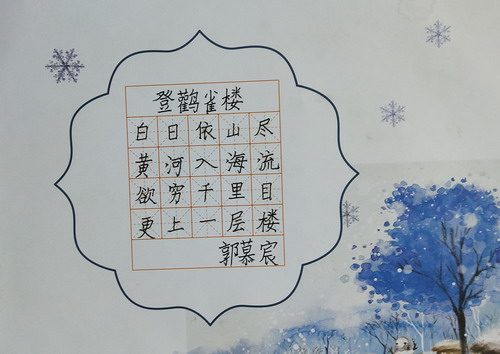 登鹳雀楼
白日依山尽
黄河入海流
欲穷千里目
更上一层楼
郭慕宸